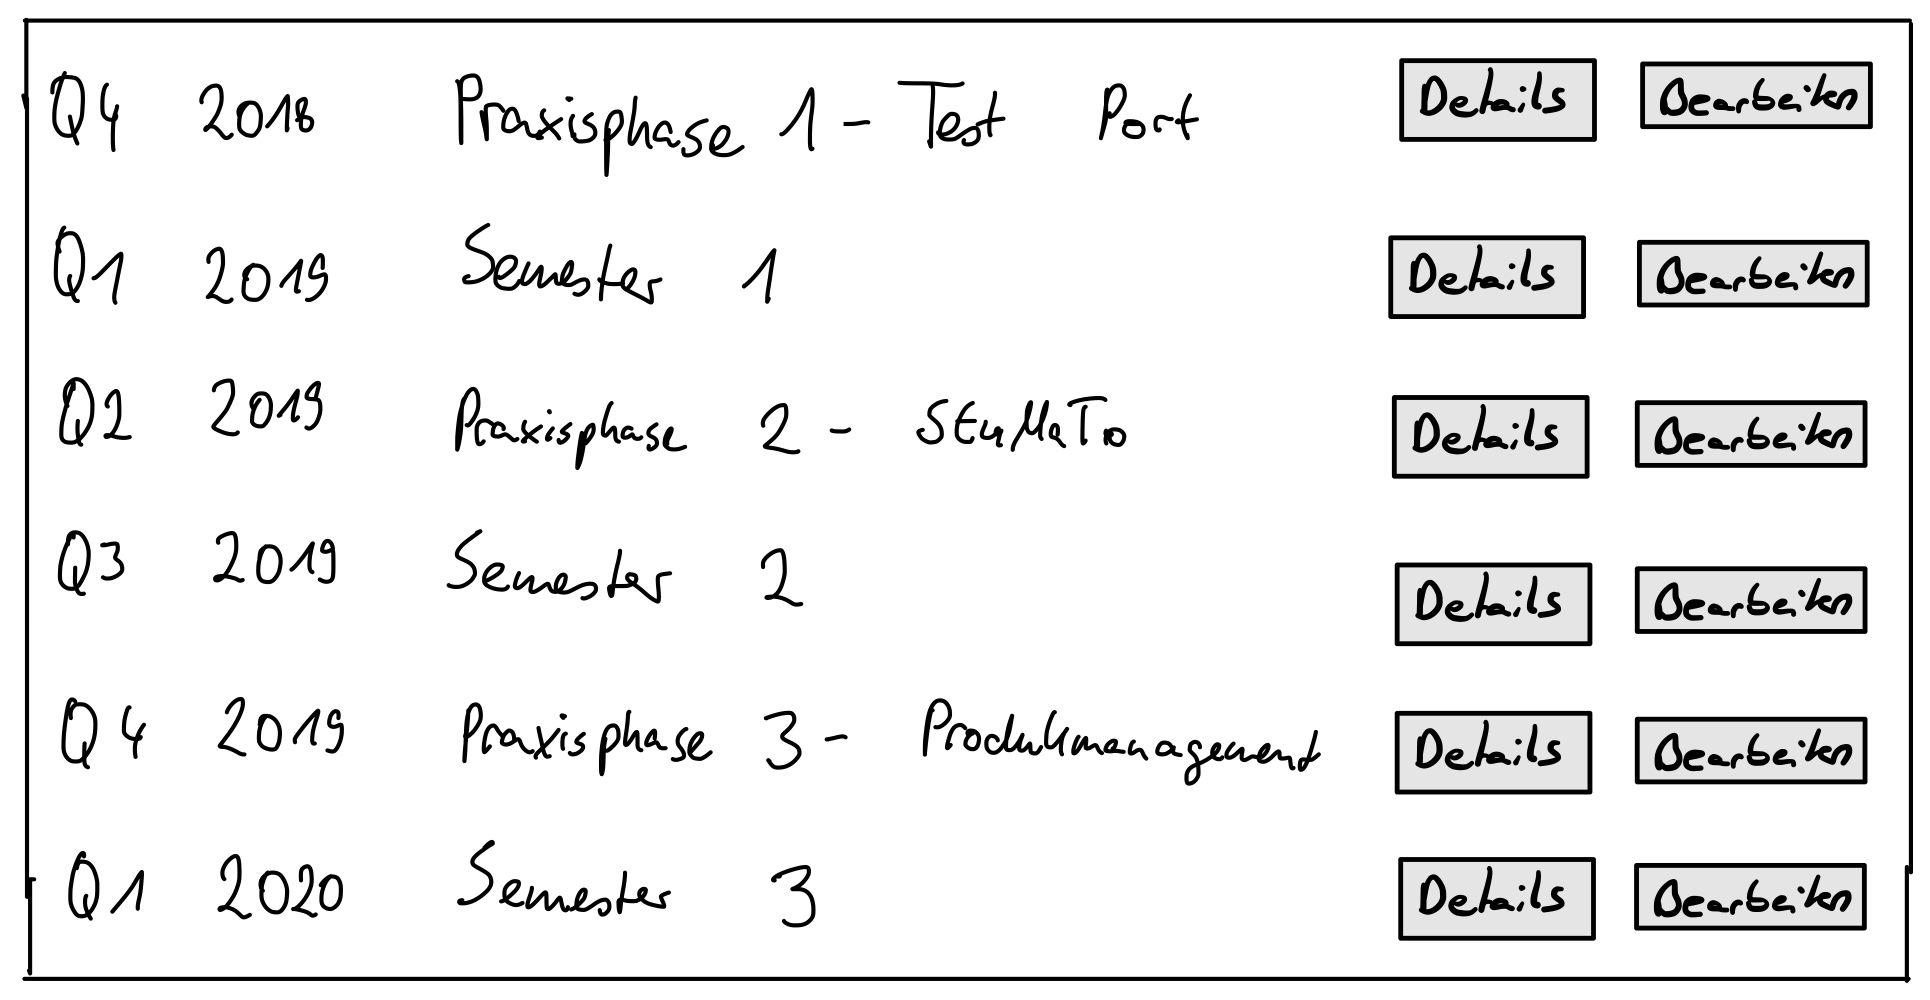 Q4 2018 Praxisphase 1 - Test Port Details Bearbeiten
Q1 2019 Semester 1 Details Bearbeiten
Q2 2019 Praxisphase 2 - StuMaTo Details Bearbeiten
Q3 2019 Semester 2 Details Bearbeiten
Q4 2019 Praxisphase 3 - Produktmanagement Details Bearbeiten
Q1 2020 Semester 3 Details Bearbeiten